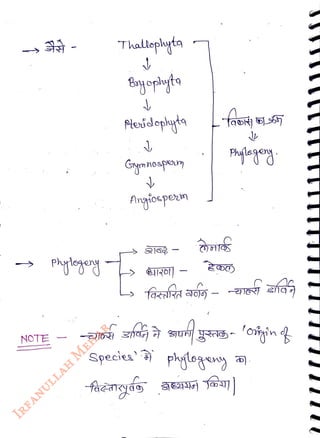 → जैसे -
Thallophyta
↓
Bryophyta
↓
Pteridophyta
↓
Gymnosperm
↓
Angiosperm
विकास का क्रम
⇓
Phylogeny.
→ Phylogeny
→ शब्द - लैमार्क
→ धारणा - हैकल
→ विस्तारित वर्णन - चार्ल्स डार्विन
NOTE - चार्ल्स डार्विन ने अपनी पुस्तक - 'Origin of
Species' में phylogeny का
विस्तारपूर्वक अध्ययन किया|
IRFANULLAH